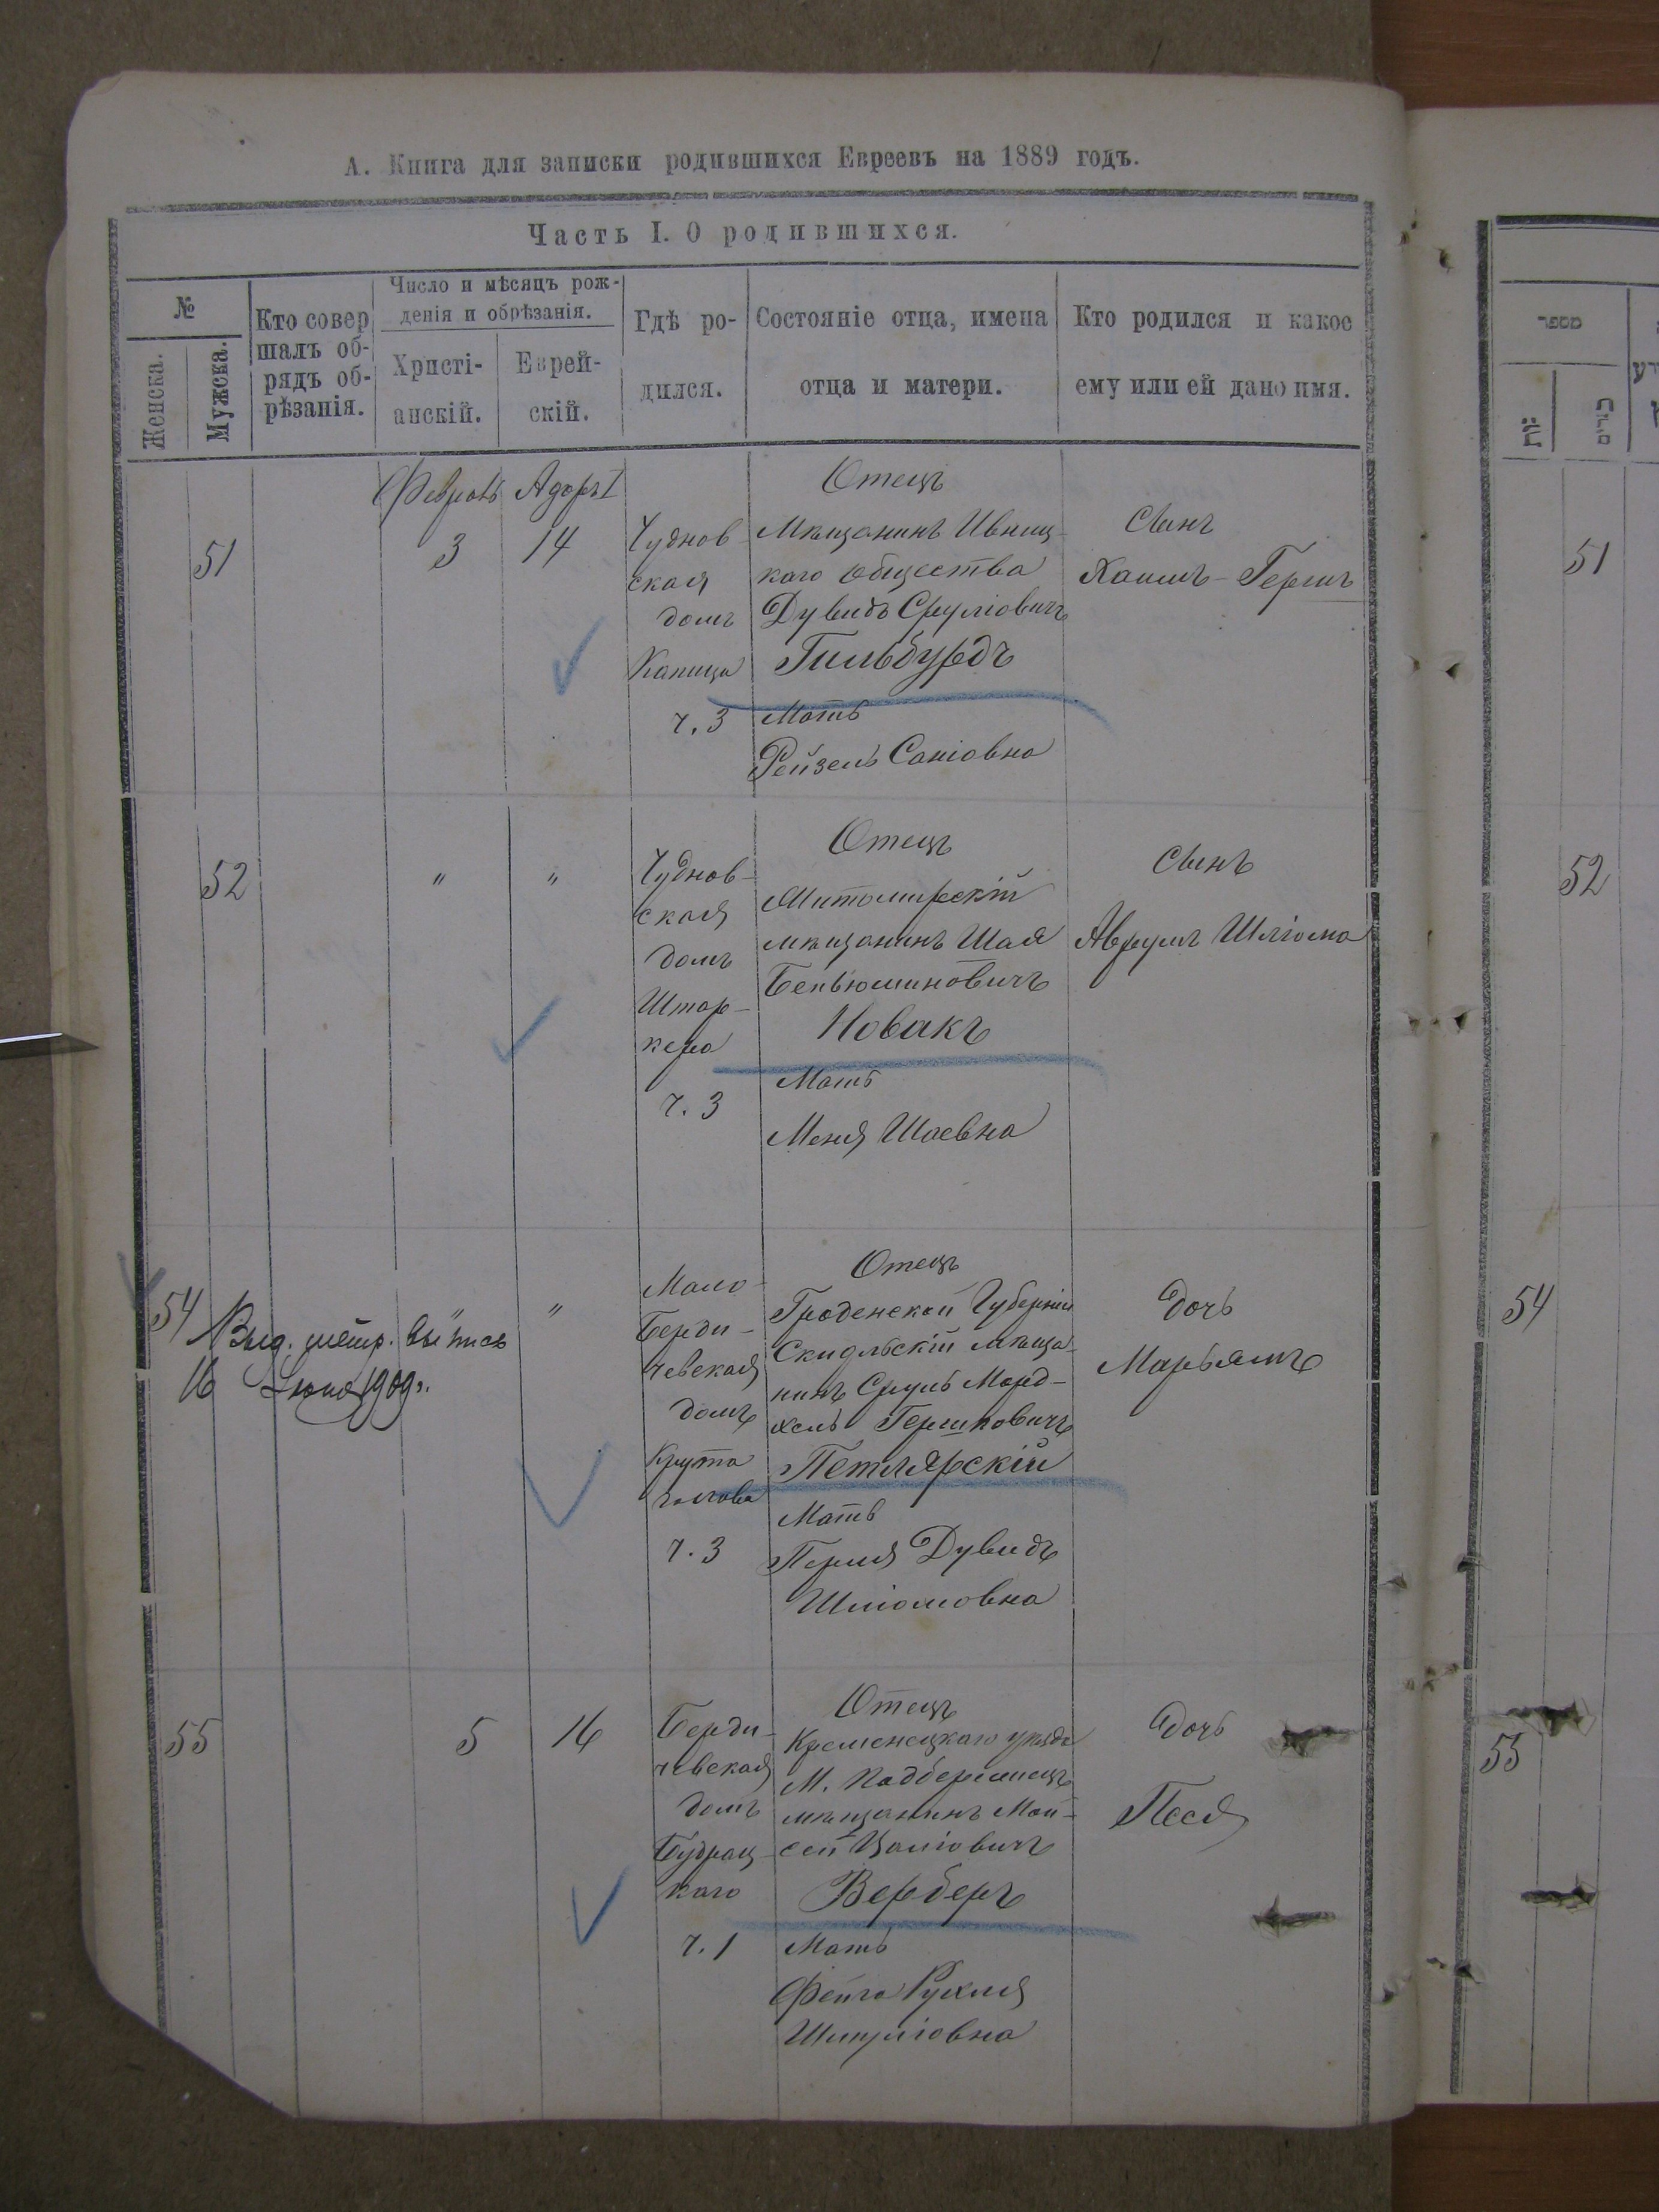 А. Книга для записки родившихся Евреевъ на 1889 годъ.
Часть I. О родившихся.
№
Женска.
Мужска.
Кто совер
шалъ об-
рядъ об-
рѣзанія.
Число и мѣсяцъ рож-
денія и обрѣзанія.
Христі-
анскій.
Еврей-
скій.
Гдѣ ро-
дился.
Состояніе отца, имена
отца и матери.
Кто родился и какое
ему или ей дано имя.
51
Февраль
3
Адаръ I
14
Чуднов
ская
домъ
Капица
ч. 3
Отецъ
Мѣщанинъ Ивниц-
каго общества
Дувидъ Сруліовичъ
Гильбурдъ
Мать
Рейзель Саніовна
Сынъ
Хаимъ-Гершъ
52
"
"
Чуднов-
ская
домъ
Штар-
кера
ч. 3
Отецъ
Житомирскій
мѣщанинъ Шая
Беньюминовичъ
Новакъ
Мать
Меня Шаевна
Сынъ
Аврумъ Шліома
54
Выд. метр. выпись
16 Іюня 1909 г.
"
"
Мало-
Берди-
чевская
домъ
Крута
голова
ч. 3
Отецъ
Гроденской Губерніи
Скидльскій мѣща-
нинъ Сруль Морд-
хель Гершковичъ
Петлярскій
Мать
Перля Дувидъ
Шліомовна
Дочь
Марьямъ
55
5
16
Берди-
чевская
домъ
Будрац-
каго
ч. 1
Отецъ
Кременецкаго уѣзда
М. Падберезецъ
мѣщанинъ Мои-
сей Цаліовичъ
Верберъ
Мать
Фейга Рухля
Шмуліовна
Дочь
Песя
מספר
51
52
54
55